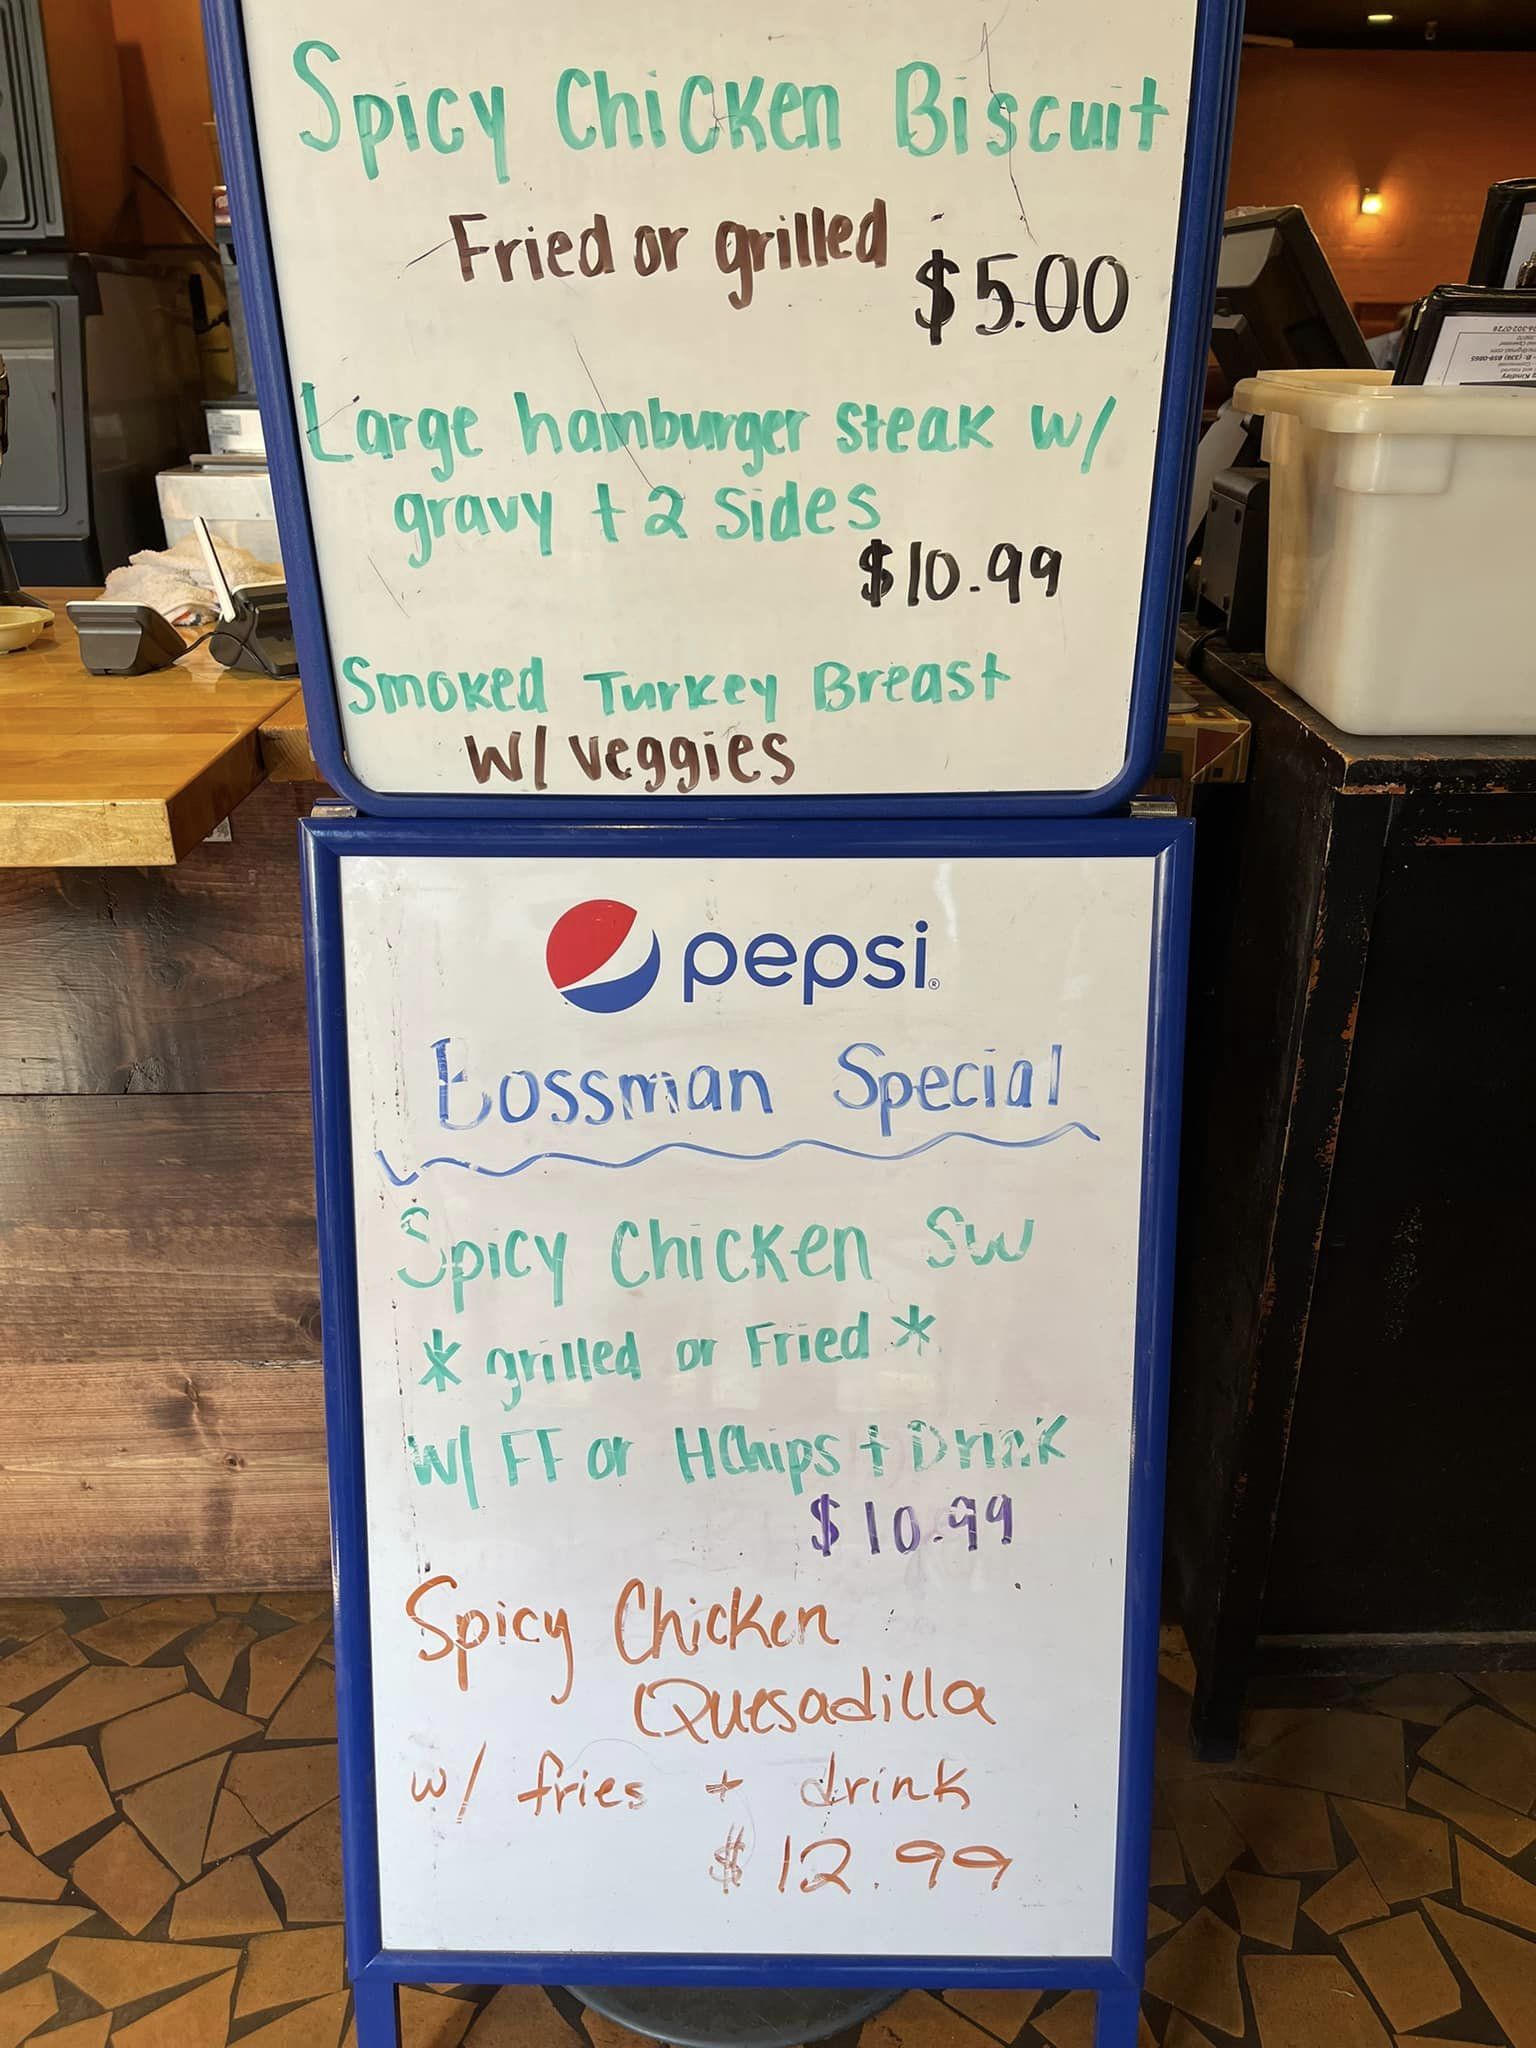 Spicy Chicken Biscuit
Fried or grilled
$5.00
Large hamburger steak w/
gravy + 2 sides
$10.99
Smoked Turkey Breast
w/ veggies
pepsi®
Bossman Special
Spicy Chicken SW
* grilled or Fried *
w/ FF or HChips + Drink
$10.99
Spicy Chicken
Quesadilla
w/ fries + drink
$12.99